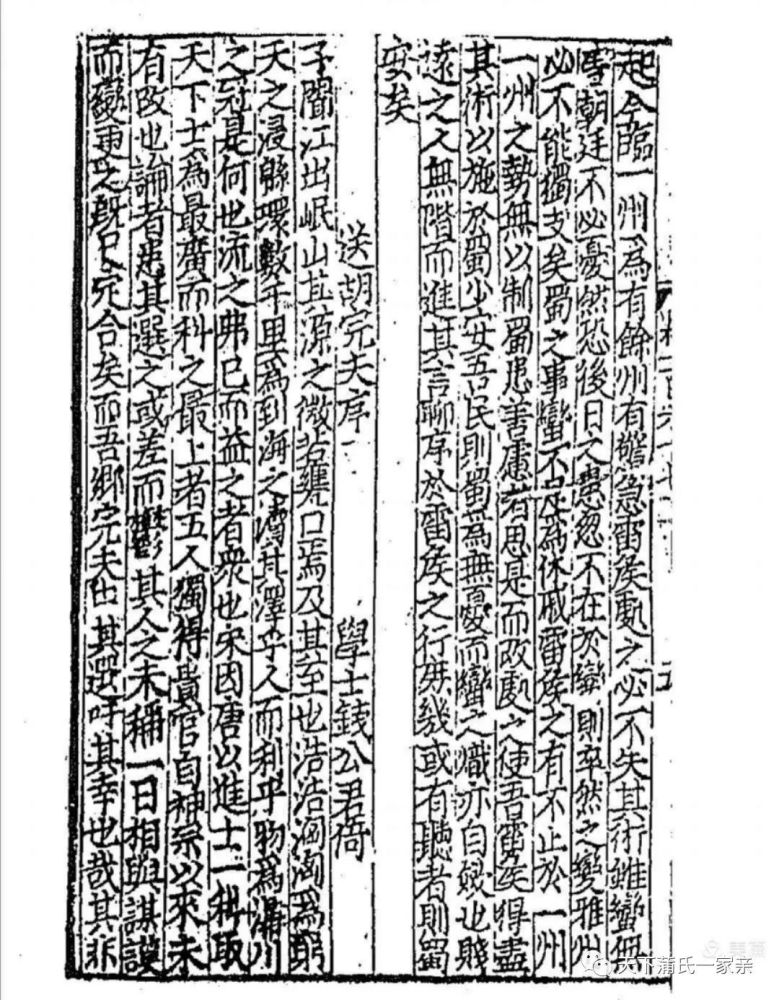 起今臨一州為有餘州有警急雷侯動之必不失其術雖蠻何
朝廷不必憂然恐後日之患忽不在於蠻則卒然之變雅州
必不能獨支矣蜀之事蠻不足為休戚雷侯之有不止於一州
一州之勢無以制蜀患善慮者思是而改處之使吾雷侯得盡
其術以施於蜀少安吾民則蜀為無憂而蠻之熾亦自戢也賤
遠之人無階而進其言聊序於雷侯之行庶幾或有聽者則蜀
安矣
送胡完夫序
學士錢公君倚
予聞江出岷山其源之微若甕口焉及其至也浩浩洶洶為窮
天之浸緜環數千里為到海之瀆其澤乎人而利乎物為瀦川
之冠是何也流之弗已而益之者眾也宋因唐以進士一科取
天下士為最廣而科之最上者五人獨得貴官自神宗以來未
有改也論者患其選之或差而其人之未稱一日相與謀謨
而變更之既已完合矣而吾鄉完夫出其選吁其幸也哉其非
天下蒲氏一家亲